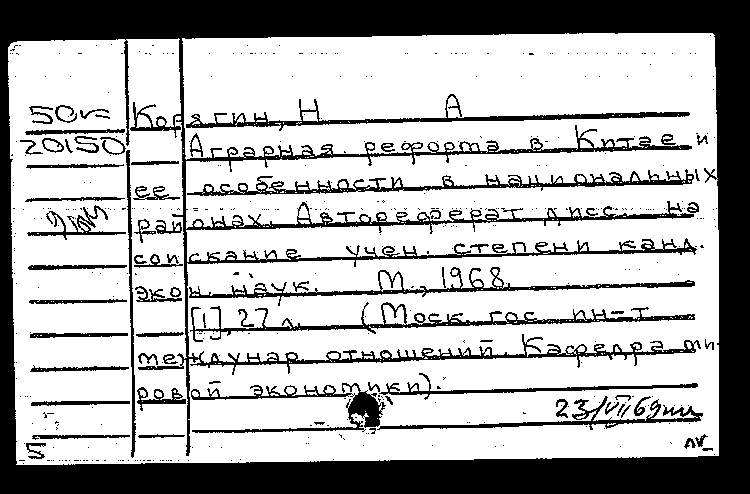 Корягин, Н А
20150 Аграрная реформа в Китае и
ее особенности в национальных
районах. Автореферат дисс. на
соискание учен. степени канд.
экон. наук. М., 1968.
[1], 27 л. (Моск. гос. ин-т
междунар отношений. Кафедра ми-
ровой экономики).